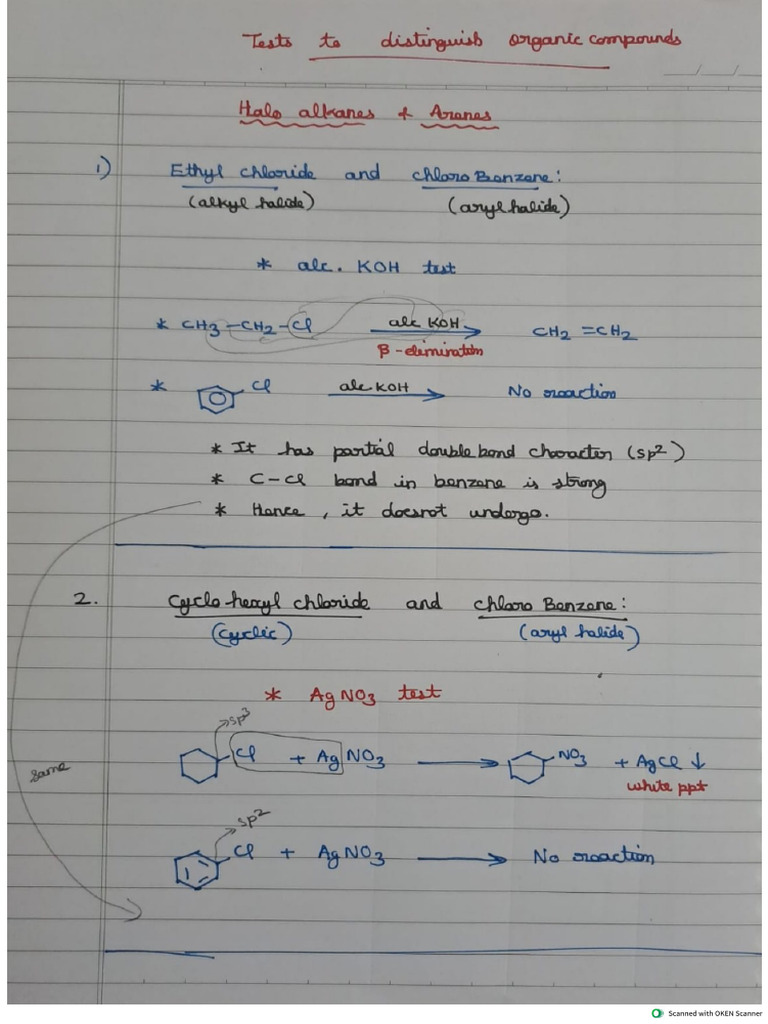 Tests to distinguish organic compounds
Halo alkanes + Arenes
1) Ethyl chloride and chloro Benzene:
(alkyl halide) (aryl halide)
* alc. KOH test
* CH3-CH2-Cl alc KOH CH2=CH2
β-elimination
* Cl alc KOH No reaction
* It has partial double bond character (sp2)
* C-Cl bond in benzene is strong
* Hence, it doesnot undergo.
2. Cyclo hexyl chloride and chloro Benzene:
(cyclic) (aryl halide)
* AgNO3 test
sp3
Cl + AgNO3 NO3 + AgCl ↓
white ppt
same
sp2
Cl + AgNO3 No reaction
Scanned with OKEN Scanner